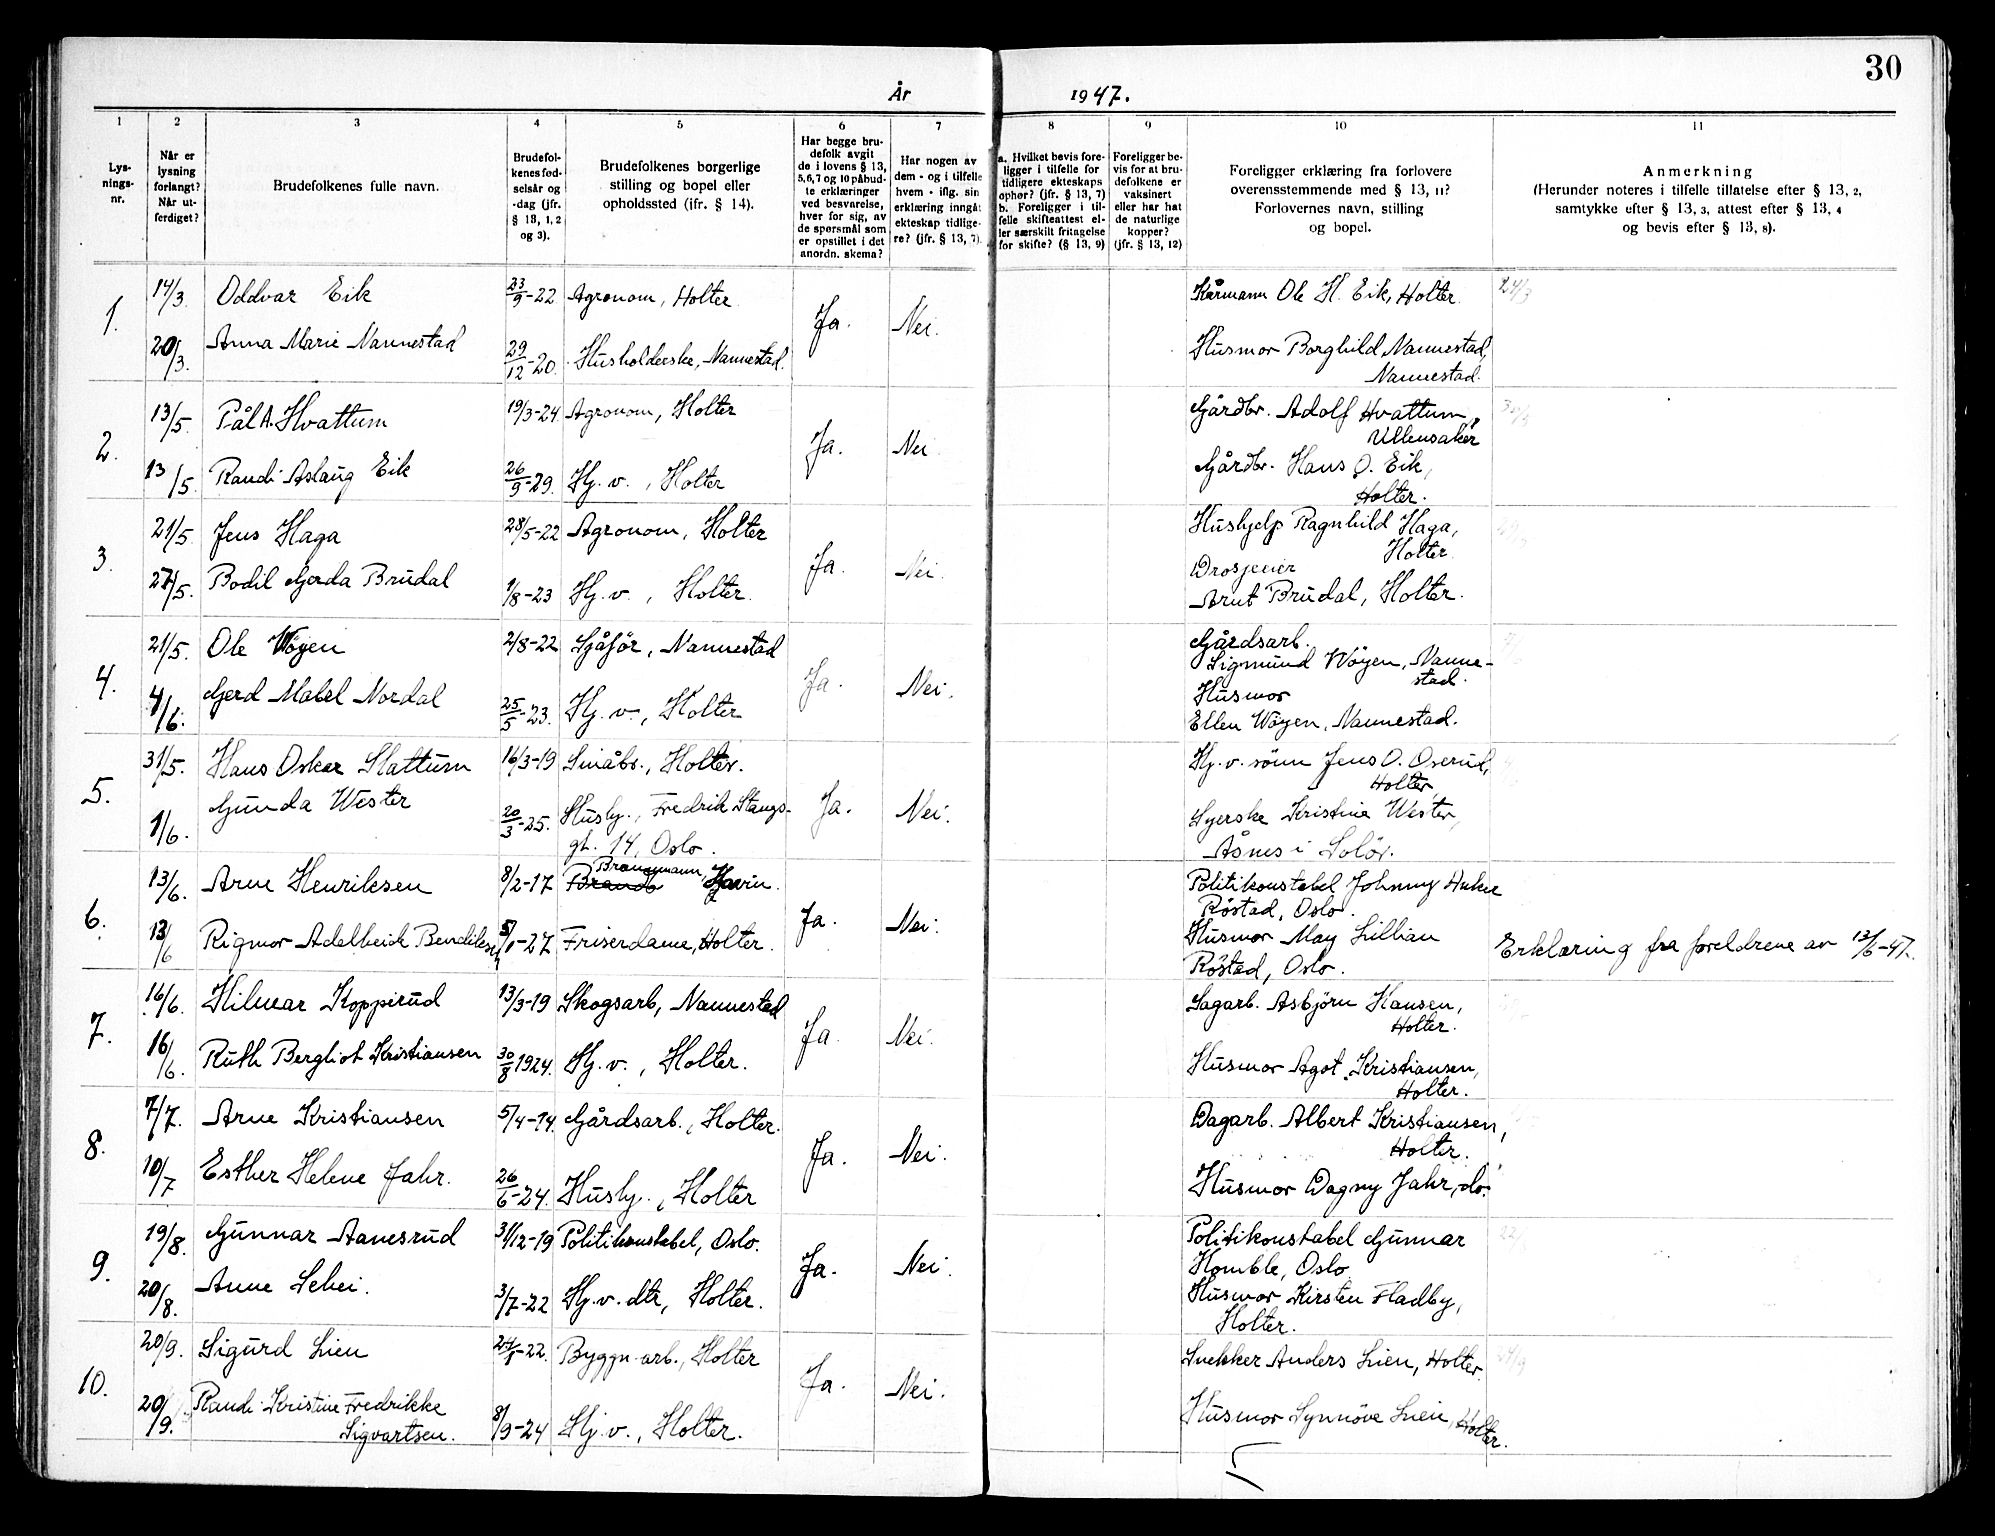 30
År 1947.
1 2 3 4 5 6 7 8 9 10 11
Lys-
nings-
nr.
Når er
lysning
forlangt?
Når ut-
ferdiget?
Brudefolkenes fulle navn.
Brudefol-
kenes fød-
selsår og
-dag (jfr.
§ 13, 1, 2
og 3).
Brudefolkenes borgerlige
stilling og bopel eller
opholdssted (ifr. § 14).
Har begge bru-
defolk avgit
de i lovens § 13,
5,6,7 og 10 påbud-
te erklæringer
ved besvarelse,
hver for sig, av
de spørsmål som
er opstillet i det
anordn. skema?
Har nogen av
dem - og i tilfelle
hvem - iflg. sin
erklæring inngåt
ekteskap tidlige-
re? (jfr. § 13, 7).
a. Hvilket bevis fore-
ligger i tilfelle for
tidligere ekteskaps
ophør? (jfr. § 13, 7)
b. Foreligger i til-
felle skifteattest el-
ler særskilt fritagelse
for skifte? (§ 13, 9)
Foreligger be-
vis for at bru-
defolkene er
vaksinert
eller har hat
de naturlige
kopper?
(jfr. § 13, 12)
Foreligger erklæring fra forlovere
overensstemmende med § 13, 11?
Forlovernes navn, stilling
og bopel.
Anmerkning
(Herunder noteres i tilfelle tillatelse efter § 13, 2,
samtykke efter § 13, 3, attest efter § 13, 4
og bevis efter § 13, 8).
1. 14/3. Oddvar Eik 23/9-22 Agronom, Holter. Ja. Nei. Kårmann Ole H. Eik, Holter. 24/3
20/3. Anna Marie Nannestad 29/12-20. Husholderske, Nannestad. Husmor Borghild Nannestad,
Nannestad.
2. 13/5. Pål A. Hvattum 19/3-24 Agronom, Holter Ja. Nei. Gårdbr. Adolf Hvattum,
Ullensaker
13/5. Randi Aslaug Eik 26/9-29. Hj. v., Holter Gårdbr. Hans O. Eik,
Holter.
3. 21/5. Jens Haga 28/5-22 Agronom, Holter Ja. Nei. Hushjelp Ragnhild Haga,
Holter.
27/5. Bodil Gerda Brudal 1/8-23 Hj. v., Holter. Drosjeeier
Arut Brudal, Holter.
4. 21/5. Ole Wøyen 2/8-22 Sjåfør, Nannestad Ja. Nei. Gårdsarb.
Sigmund Wøyen, Nanne-
stad.
4/6. Gerd Mabel Nordal 25/5-23. Hj. v., Holter Husmor
Ellen Wøyen, Nannestad.
5. 31/5. Hans Oskar Slattum 16/3-19 Småbr., Holter. Ja. Nei. Hj. v. sønn Jens O. Oserud,
Holter
1/6. Gunda Wester 20/3-25. Hushj., Fredrik Stangs-
gt. 14, Oslo. Syerske Kristine Wester,
Åsnes i Solør.
6. 13/6. Arne Henriksen 8/2-17 Brandb Brannmann, Gjøvin. Ja. Nei. Politikonstabel Johnny
Røstad, Oslo.
13/6 Rigmor Adelheid Bendiksen 5/1-27 Friserdame, Holter. Husmor May Lillian
Røstad, Oslo. Erklæring fra foreldrene av 13/6-47.
7. 16/6. Hilmar Koppirud 13/3-19 Skogsarb, Nannestad Ja. Nei. Sagarb. Asbjørn Hansen,
Holter.
16/6. Ruth Bergliot Kristiansen 30/8 1924. Hj. v., Holter. Husmor Agot Kristiansen,
Holter.
8. 7/7. Arne Kristiansen 5/4-14. Gårdsarb., Holter. Ja. Nei. Dagarb. Albert Kristiansen,
Holter.
10/7 Esther Helene Jahr. 26/6-24. Hushj., Holter Husmor Dagny Jahr, do.
9. 19/8. Gunnar Aanesrud 31/12-19 Politikonstabel, Oslo. Ja. Nei. Politikonstabel Gunnar
Homble, Oslo
20/8. Anne Sehei. 3/7-22 Hj. v. dtr, Holter. Husmor Kirsten Fladby,
Holter.
10. 20/9. Sigurd Lien 24/5-22. Byggn. arb., Holter Ja. Nei. Snekker Anders Lien, Holter.
20/9. Randi Kristine Fredrikke
Sigvartsen. 8/9-24 Hj. v., Holter. Husmor Synnøve Lien, Holter.